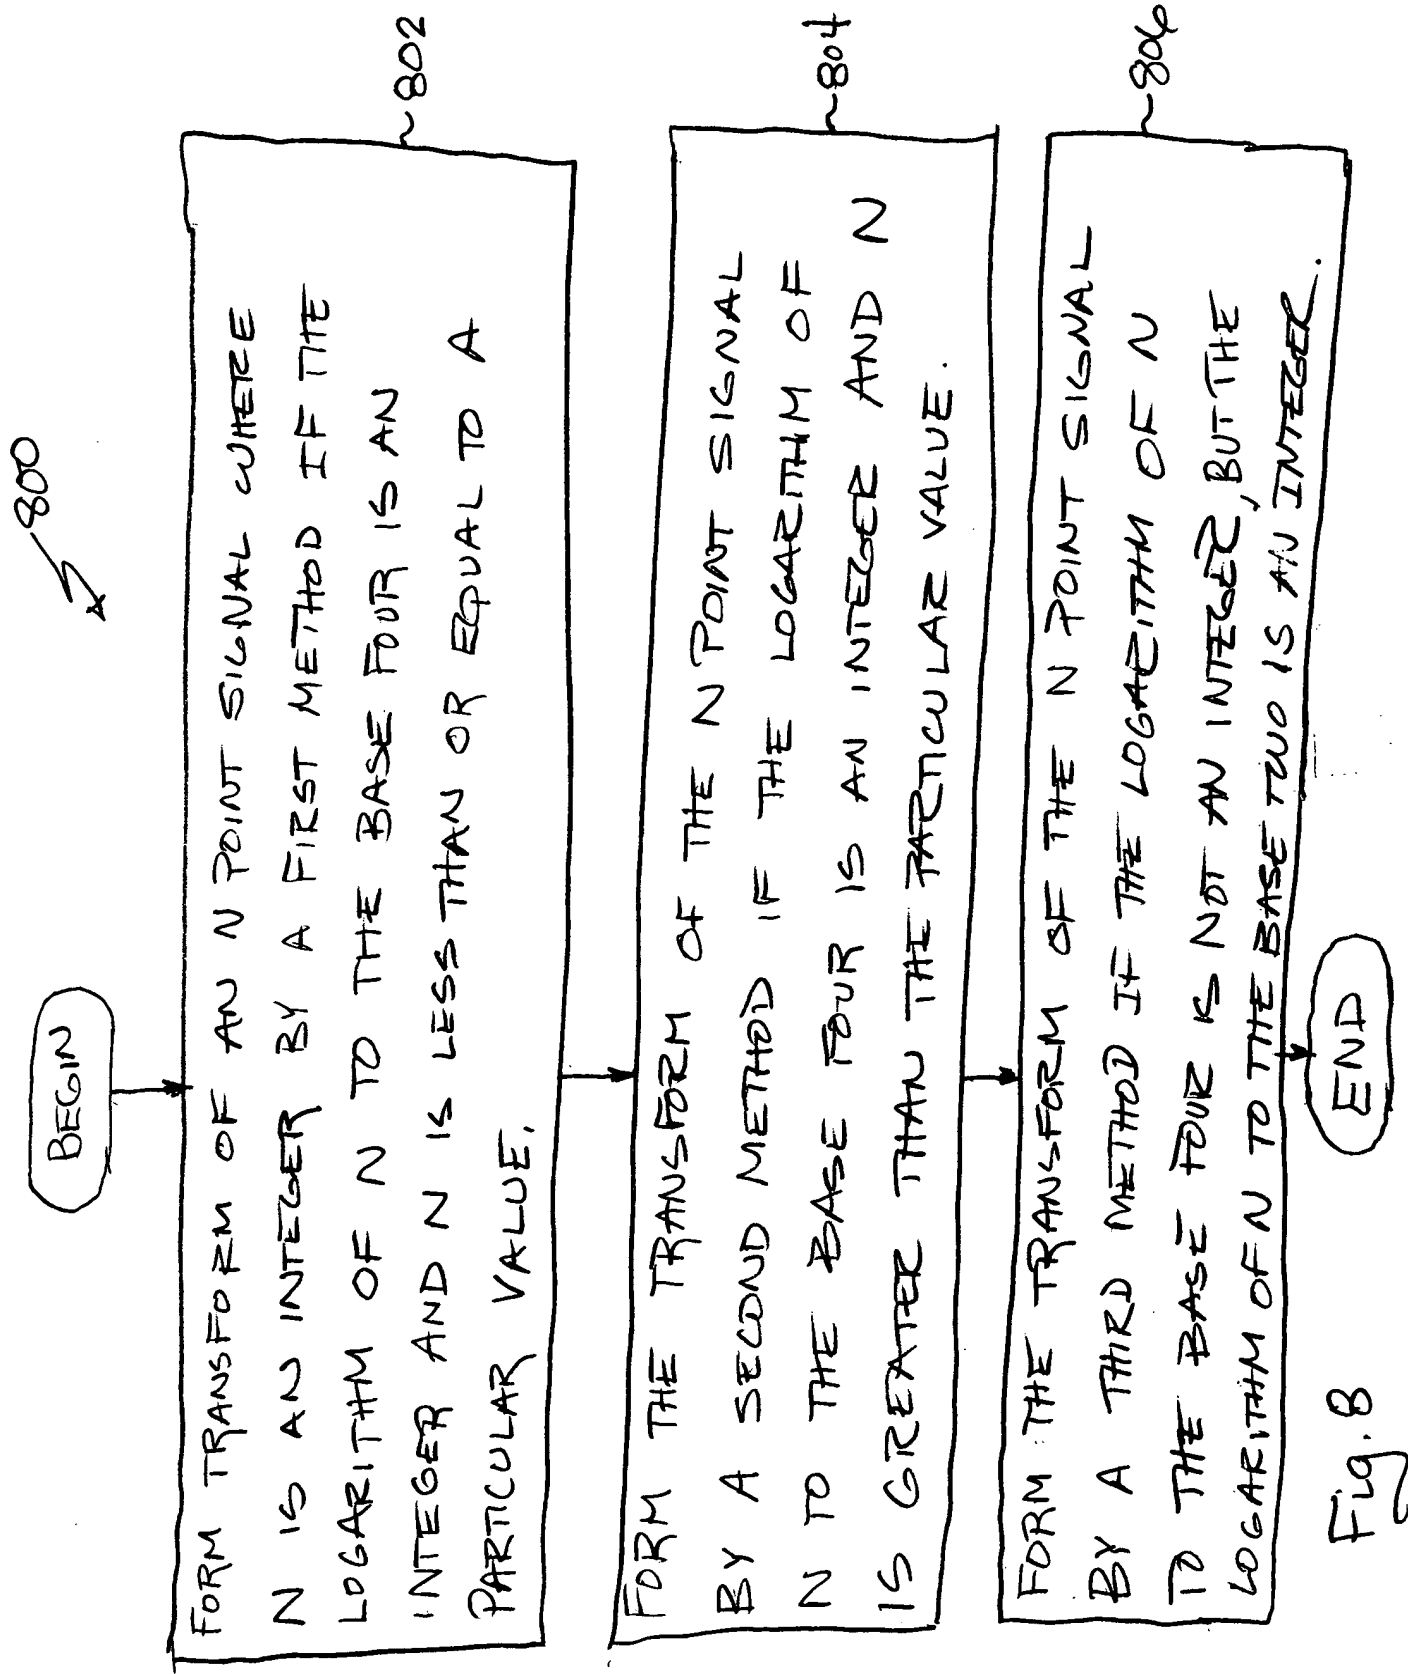 800
BEGIN
802
FORM TRANSFORM OF AN N POINT SIGNAL WHERE
N IS AN INTEGER BY A FIRST METHOD IF THE
LOGARITHM OF N TO THE BASE FOUR IS AN
INTEGER AND N IS LESS THAN OR EQUAL TO A
PARTICULAR VALUE.
804
FORM THE TRANSFORM OF THE N POINT SIGNAL
BY A SECOND METHOD IF THE LOGARITHM OF
N TO THE BASE FOUR IS AN INTEGER AND N
IS GREATER THAN THE PARTICULAR VALUE.
806
FORM THE TRANSFORM OF THE N POINT SIGNAL
BY A THIRD METHOD IF THE LOGARITHM OF N
TO THE BASE FOUR IS NOT AN INTEGER, BUT THE
LOGARITHM OF N TO THE BASE TWO IS AN INTEGER.
END
Fig. 8